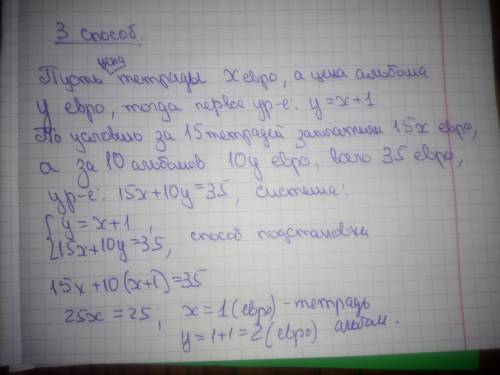 3 способ.
цена
Пусть тетрады x евро, а цена альбома
y евро, тогда первое ур-е: y=x+1
По условию за 15 тетрадей заплатили 15x евро,
а за 10 альбомов 10y евро, всего 35 евро,
ур-е: 15x+10y=35, система:
{ y=x+1 ,
15x+10y=35, способ подстановки
15x+10(x+1)=35
25x=25; x=1(евро)-тетрадь
y=1+1=2(евро) альбом.